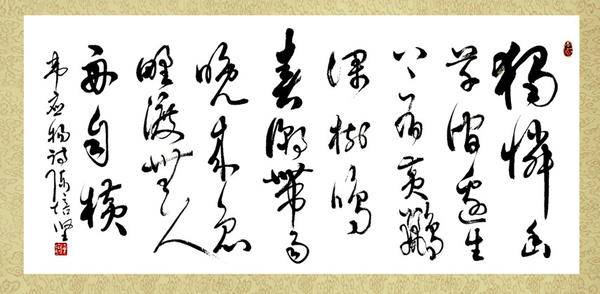 獨憐幽
草澗邊生
上有黄鸝
深樹鳴
春潮帶雨
晚来急
野渡無人
舟自横
韦应物诗陈培坚